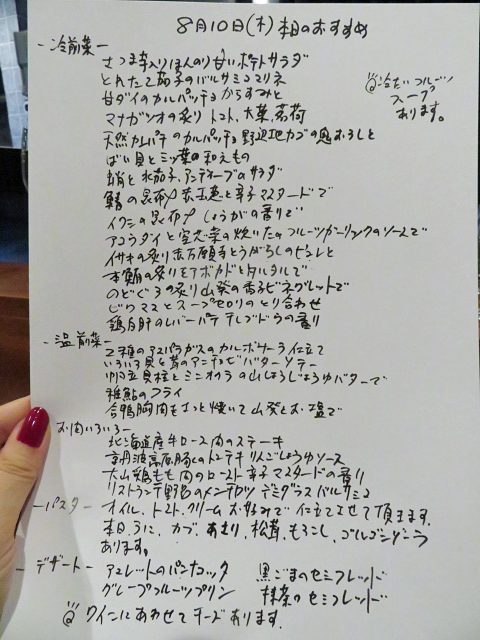 8月10日(木)本日のおすすめ
-冷前菜-
さつま芋入りほんのり甘いポテトサラダ
とれたて茄子のバルサミコマリネ
甘ダイのカルパッチョからすみと
マナガツオの炙り トマト、大葉、茗荷
@冷たいフルーツ
スープ
あります。
天然カンパチのカルパッチョ 野辺地カブの鬼おろしと
ばい貝と三ツ葉の和えもの
蛸と水茄子、アンディーブのサラダ
鯖の昆布〆 赤玉葱と辛子マスタードで
イワシの昆布〆 しょうがの香りで
アコウダイと空芯菜の炊いたの フルーツガーリックのソースで
イサキの炙り 赤万願寺とうがらしのピュレと
本鮪の炙り アボカドとタルタルで
のどぐろの炙り 山葵の香るビネグレットで
ビワマスとスープセロリのとり合わせ
鶏肝のレバーパテ デラブドウの香り
-温前菜-
2種のアスパラガスのカルボナーラ仕立て
いろいろ貝と茸のアンチョビバターソテー
帆立貝柱とミニオクラの山しょうじょうゆバターで
稚鮎のフライ
合鴨胸肉をさっと焼いて山葵とお塩で
お肉いろいろ-
北海道産牛ロース肉のステーキ
京丹波高原豚のトンテキ りんごじょうゆソース
大山鶏もも肉のロースト 辛子マスタードの香り
リストランテ野呂のメンチカツ デミグラスバルサミコ
-パスタ-
オイル、トマト、クリーム お好みで 仕立てさせて頂きます。
本日、うに、カブ、あさり、松茸、もろこし、ゴルゴンゾーラ
あります。
-デザート-
アメレットのパンナコッタ 黒ごまのセミフレッド
グレープフルーツプリン 抹茶のセミフレッド
@ワインにあわせてチーズあります。